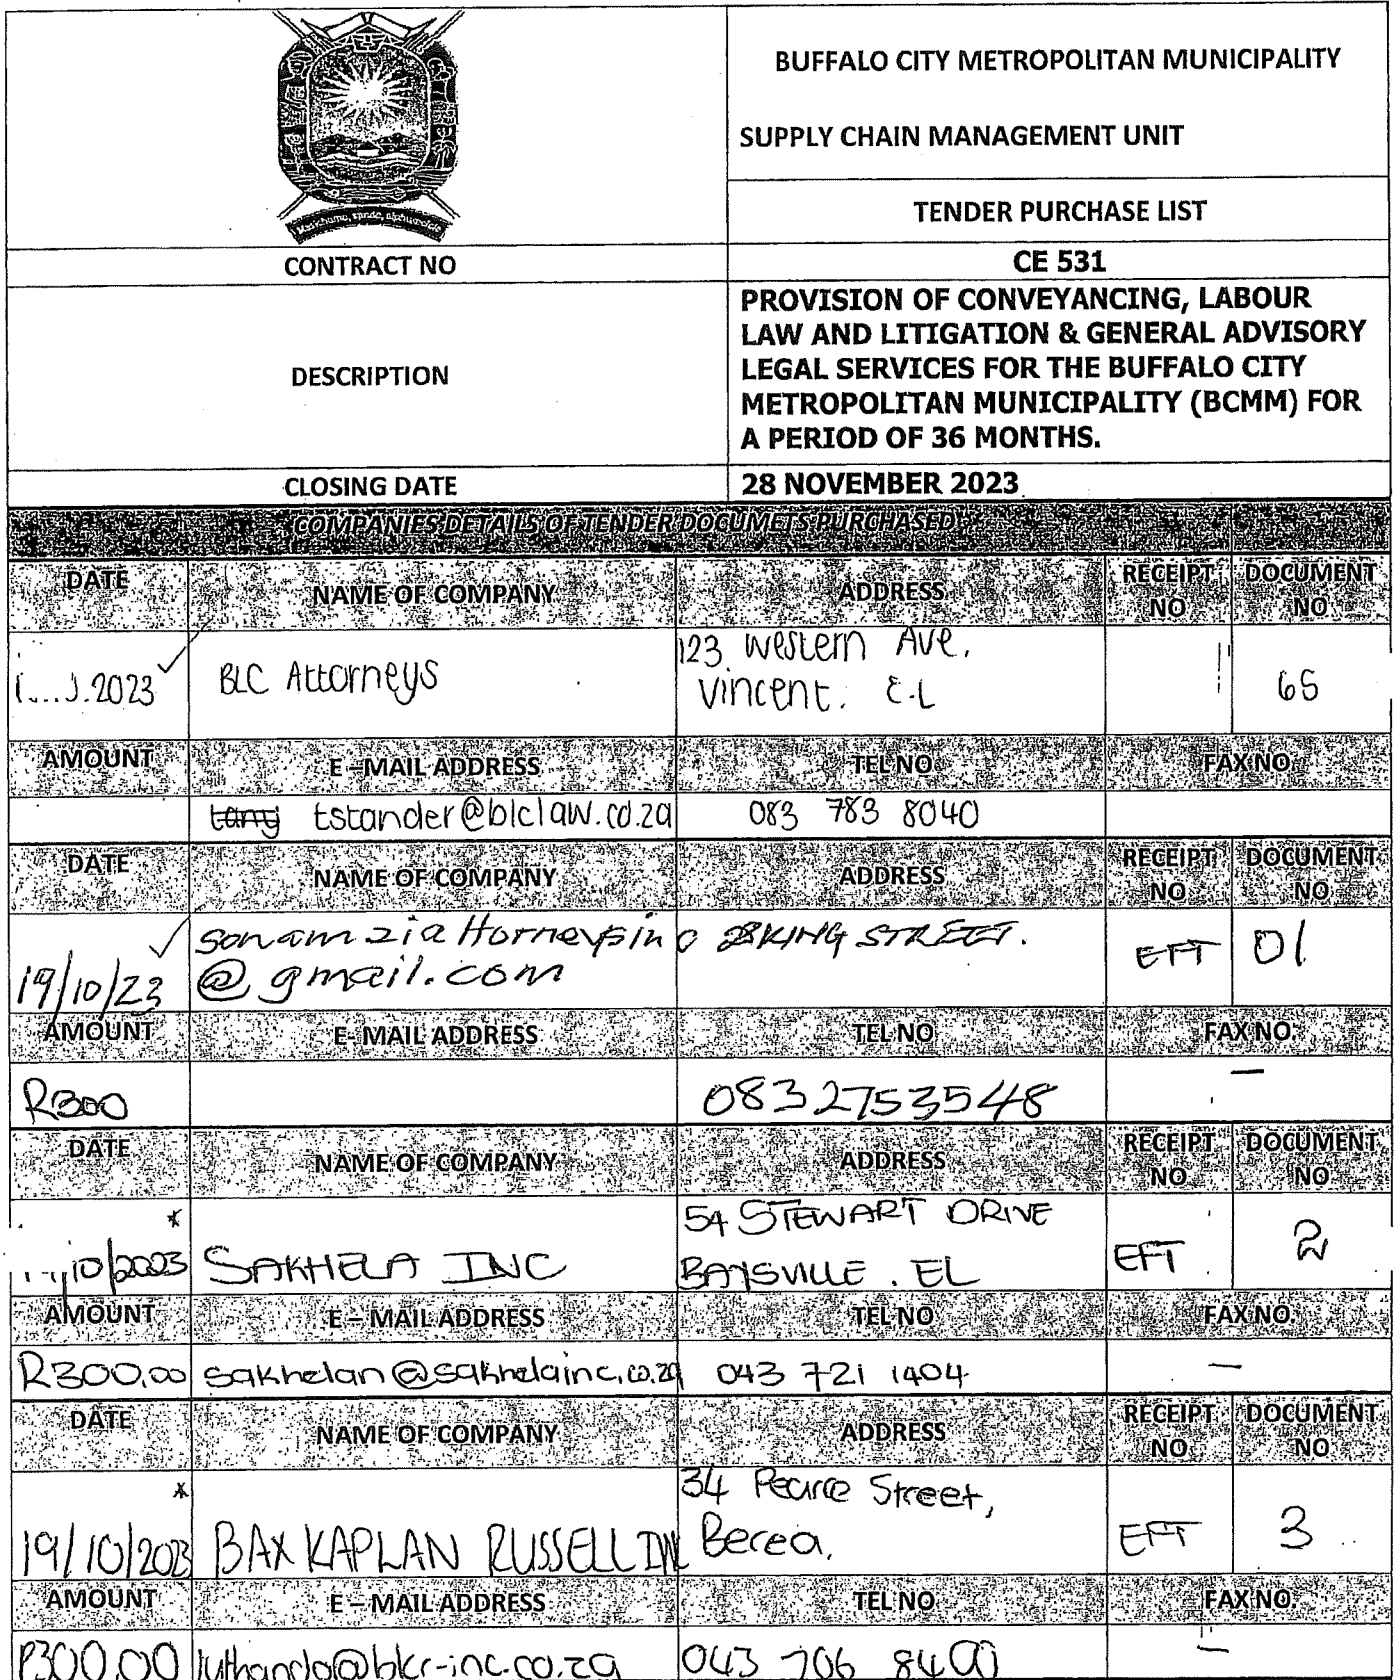 BUFFALO CITY METROPOLITAN MUNICIPALITY
SUPPLY CHAIN MANAGEMENT UNIT
TENDER PURCHASE LIST
CONTRACT NO CE 531
DESCRIPTION
PROVISION OF CONVEYANCING, LABOUR
LAW AND LITIGATION & GENERAL ADVISORY
LEGAL SERVICES FOR THE BUFFALO CITY
METROPOLITAN MUNICIPALITY (BCMM) FOR
A PERIOD OF 36 MONTHS.
CLOSING DATE 28 NOVEMBER 2023
COMPANIES DETAILS OF TENDER DOCUMETS PURCHASED
DATE NAME OF COMPANY ADDRESS RECEIPT NO DOCUMENT NO
2023 BLC Attorneys 123 Western Ave, 65
Vincent. E.L
AMOUNT E – MAIL ADDRESS TEL NO FAX NO.
tstander@blclaw.co.za 083 783 8040
DATE NAME OF COMPANY ADDRESS RECEIPT NO DOCUMENT NO
19/10/23 sonamziattorneysinc KING STREET. EFT 01
@gmail.com
AMOUNT E- MAIL ADDRESS TEL NO FAX NO.
R300 0832753548 –
DATE NAME OF COMPANY ADDRESS RECEIPT NO. DOCUMENT NO.
10/2023 SAKHELA INC 54 STEWART DRIVE EFT 2
BAYSVILLE. EL
AMOUNT E – MAIL ADDRESS TEL NO FAX NO.
R300.00 sakhelan@sakhelainc.co.za 043 721 1404 –
DATE NAME OF COMPANY ADDRESS RECEIPT NO. DOCUMENT NO.
19/10/2023 BAX KAPLAN RUSSELL INC 34 Pearce Street, EFT 3
Berea.
AMOUNT E – MAIL ADDRESS TEL NO FAX NO.
R300.00 luthando@bkr-inc.co.za 043 706 8400 –